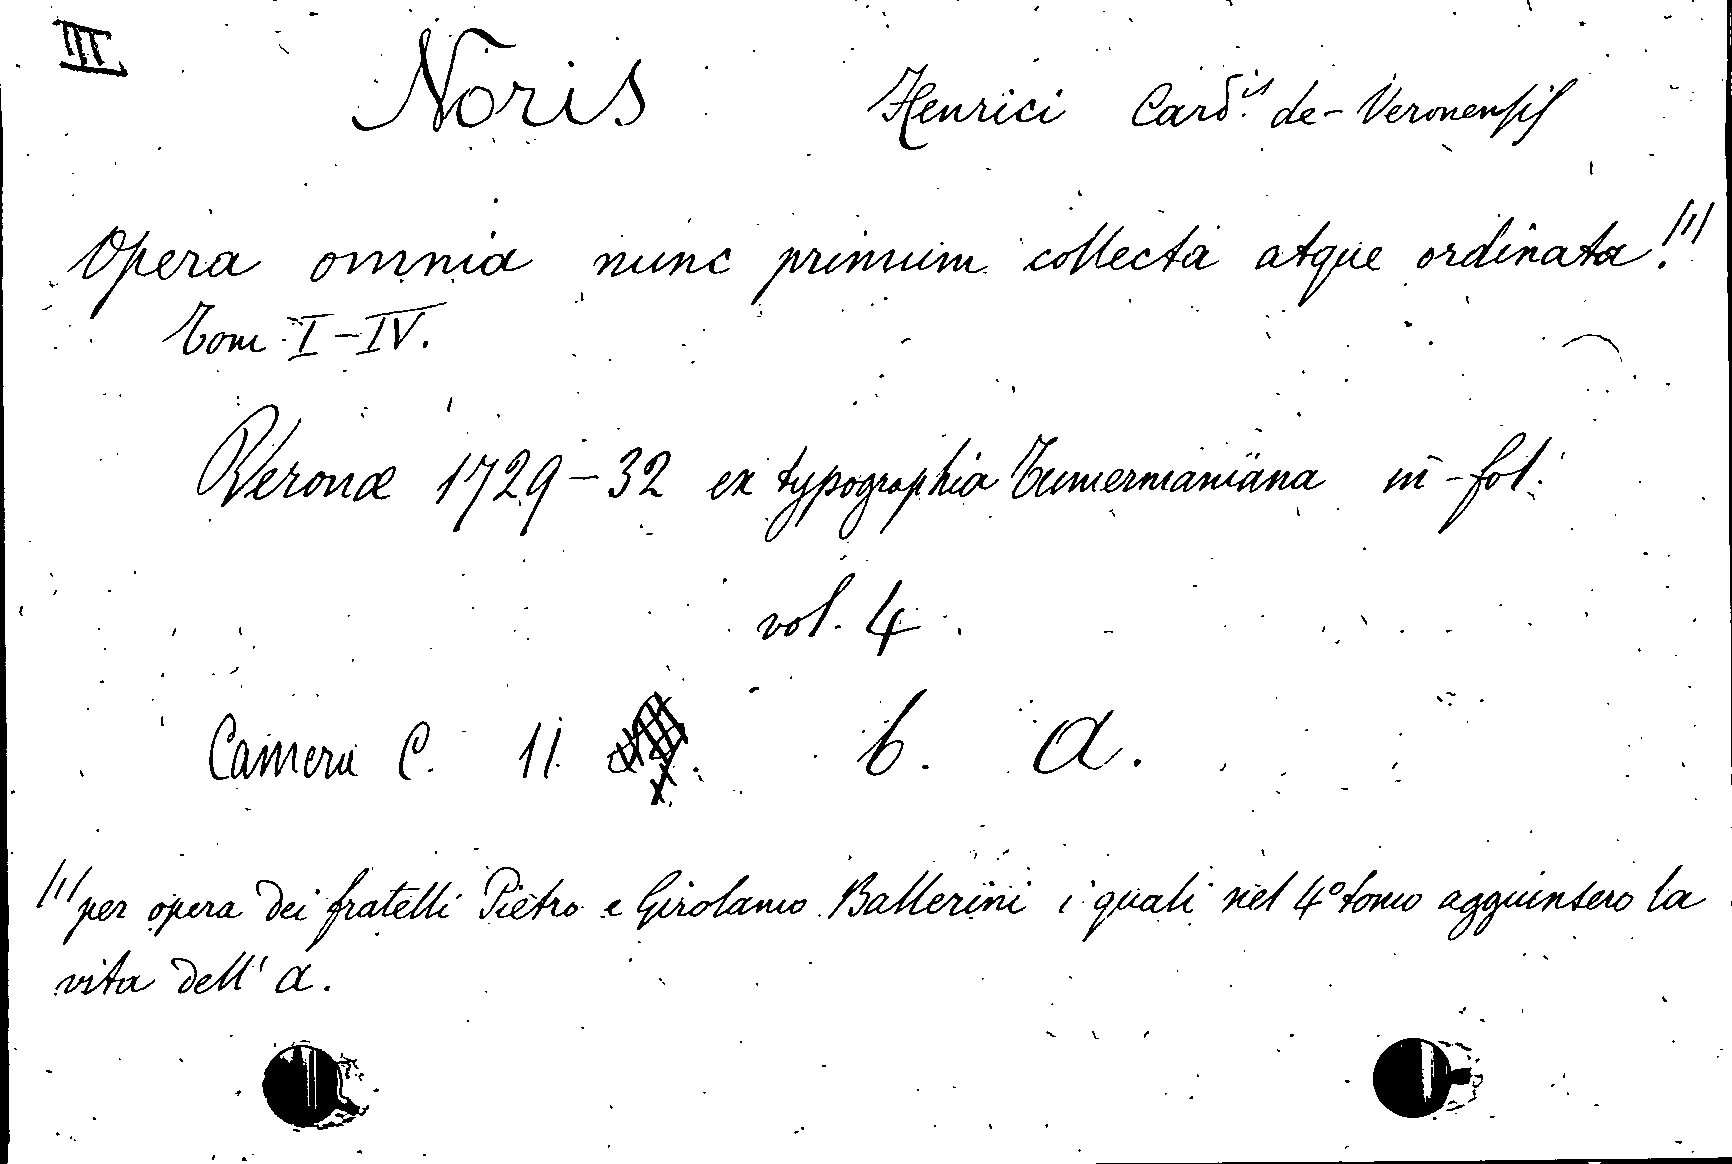 III
Noris Henrici Card.is de-Veronensis
Opera omnia nunc primum collecta atque ordinata. (1)
Tom. I-IV.
Veronæ 1729-32 ex typographia Tumermaniana in-fol.
vol. 4.
Camera C. 11. b. a.
(1) per opera dei fratelli Pietro e Girolamo Ballerini i quali nel 4º tomo aggiunsero la
vita dell' a.